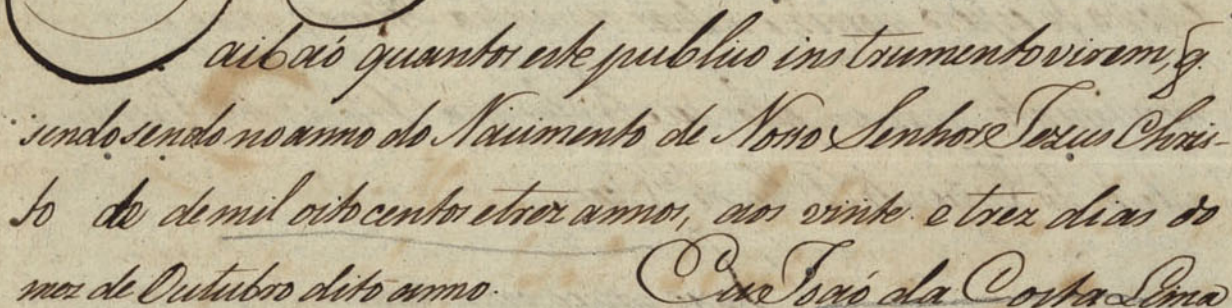 Saibaõ quantos este publico instrumento virem, q.
sendo sendo no anno do Nacimento de Nosso Senhor Jezus Chris-
to de demil oitocentos etrez annos, aos vinte etrez dias do
mez de Outubro dito anno. Eu Joaõ da Costa Lima